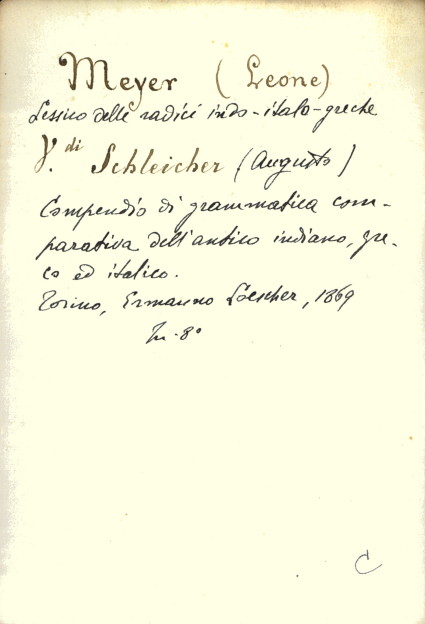 Meyer (Leone)
Lessico delle radici indo-italo-greche
V. di Schleicher (Augusto)
Compendio di grammatica com-
parativa dell'antico indiano, gre-
co ed italico.
Torino, Ermanno Loescher, 1869
In-8°
C